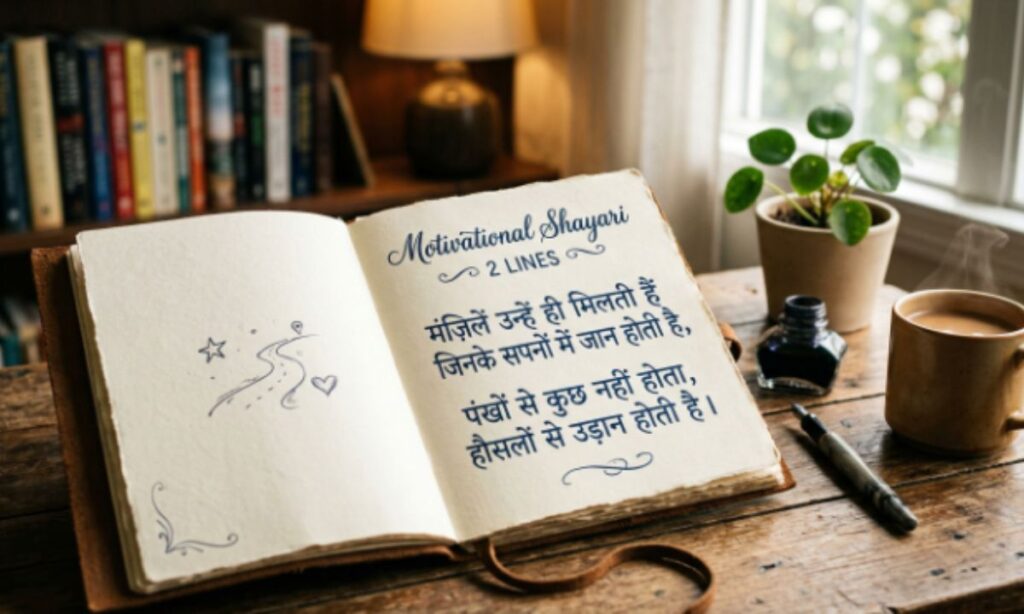 Motivational Shayari
2 LINES
मंज़िलें उन्हें ही मिलती हैं
जिनके सपनों में जान होती है,
पंखों से कुछ नहीं होता,
हौसलों से उड़ान होती है।